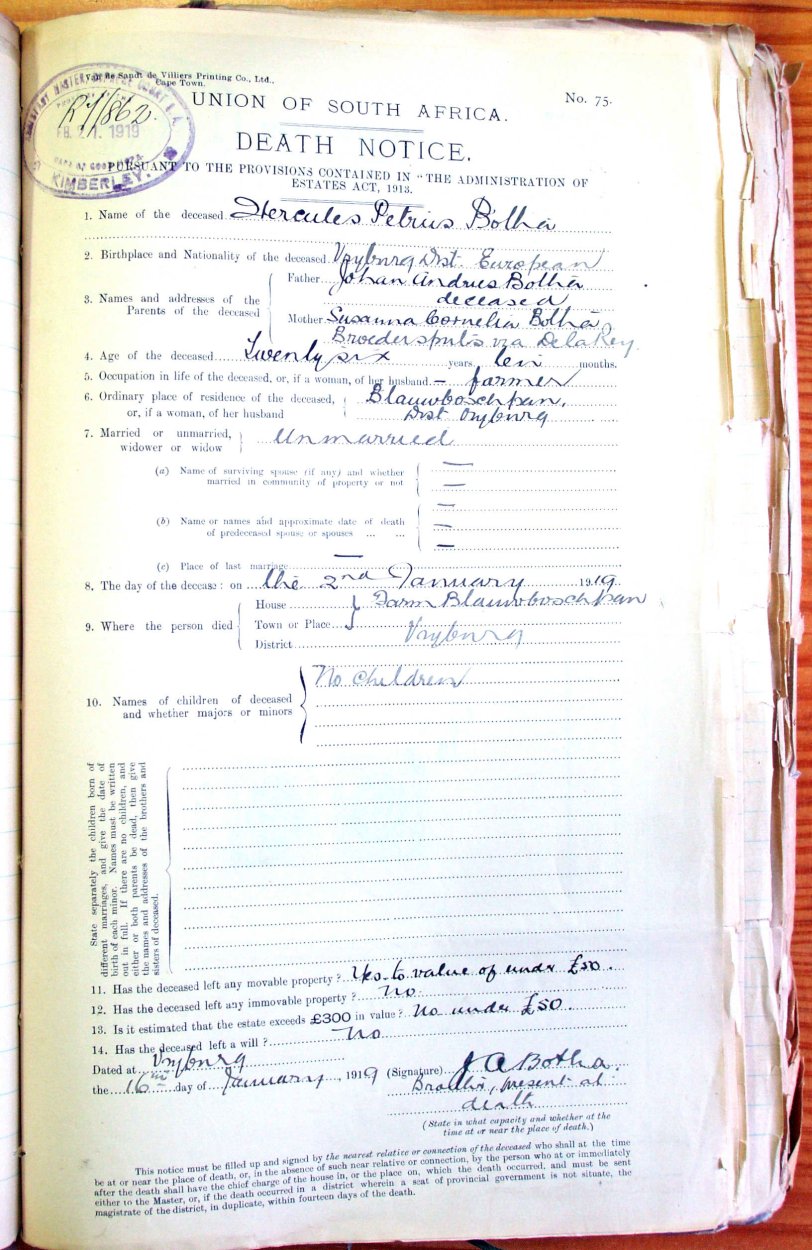 Van de Sandt de Villiers Printing Co., Ltd.,
Cape Town.
UNION OF SOUTH AFRICA.
No. 75.
R1/862
FEB 21. 1919
KIMBERLEY.
DEATH NOTICE.
PURSUANT TO THE PROVISIONS CONTAINED IN "THE ADMINISTRATION OF
ESTATES ACT, 1913.
1. Name of the deceased Hercules Petrius Botha
2. Birthplace and Nationality of the deceased Vryburg Dist. European
3. Names and addresses of the Parents of the deceased
Father Johan Andries Botha
deceased
Mother Susanna Cornelia Botha
Broedersputs via Delarey.
4. Age of the deceased Twenty six years ten months.
5. Occupation in life of the deceased, or, if a woman, of her husband. – farmer
6. Ordinary place of residence of the deceased, Blauwboschpan,
or, if a woman, of her husband Dist Vryburg
7. Married or unmarried, Unmarried
widower or widow
(a) Name of surviving spouse (if any) and whether —
married in community of property or not —
—
(b) Name or names and approximate date of death —
of predeceased spouse or spouses ... ... —
(c) Place of last marriage —
8. The day of the decease: on the 2nd January 1919
9. Where the person died
House Farm Blauwboschpan
Town or Place
District Vryburg
10. Names of children of deceased
and whether majors or minors
No children
State separately the children born of
different marriages, and give the date of
birth of each minor. Names must be written
out in full. If there are no children, and
either or both parents be dead, then give
the names and addresses of the brothers and
sisters of deceased.
11. Has the deceased left any movable property? Yes to value of under £50.
12. Has the deceased left any immovable property? No
13. Is it estimated that the estate exceeds £300 in value? No under £50.
14. Has the deceased left a will? No
Dated at Vryburg
the 16th day of January, 1919 (Signature) J A Botha.
Brother, present at
death
(State in what capacity and whether at the
time at or near the place of death.)
This notice must be filled up and signed by the nearest relative or connection of the deceased who shall at the time
be at or near the place of death, or, in the absence of such near relative or connection, by the person who at or immediately
after the death shall have the chief charge of the house in, or the place on, which the death occurred, and must be sent
either to the Master, or, if the death occurred in a district wherein a seat of provincial government is not situate, the
magistrate of the district, in duplicate, within fourteen days of the death.